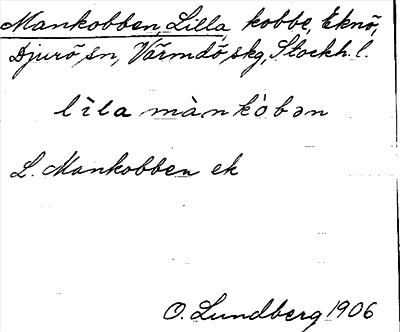 Mankobben, Lilla, kobbe, Eknö,
Djurö sn, Värmdö skg, Stockh. l.
lìla mànkòbən
L. Mankobben ek
O. Lundberg 1906